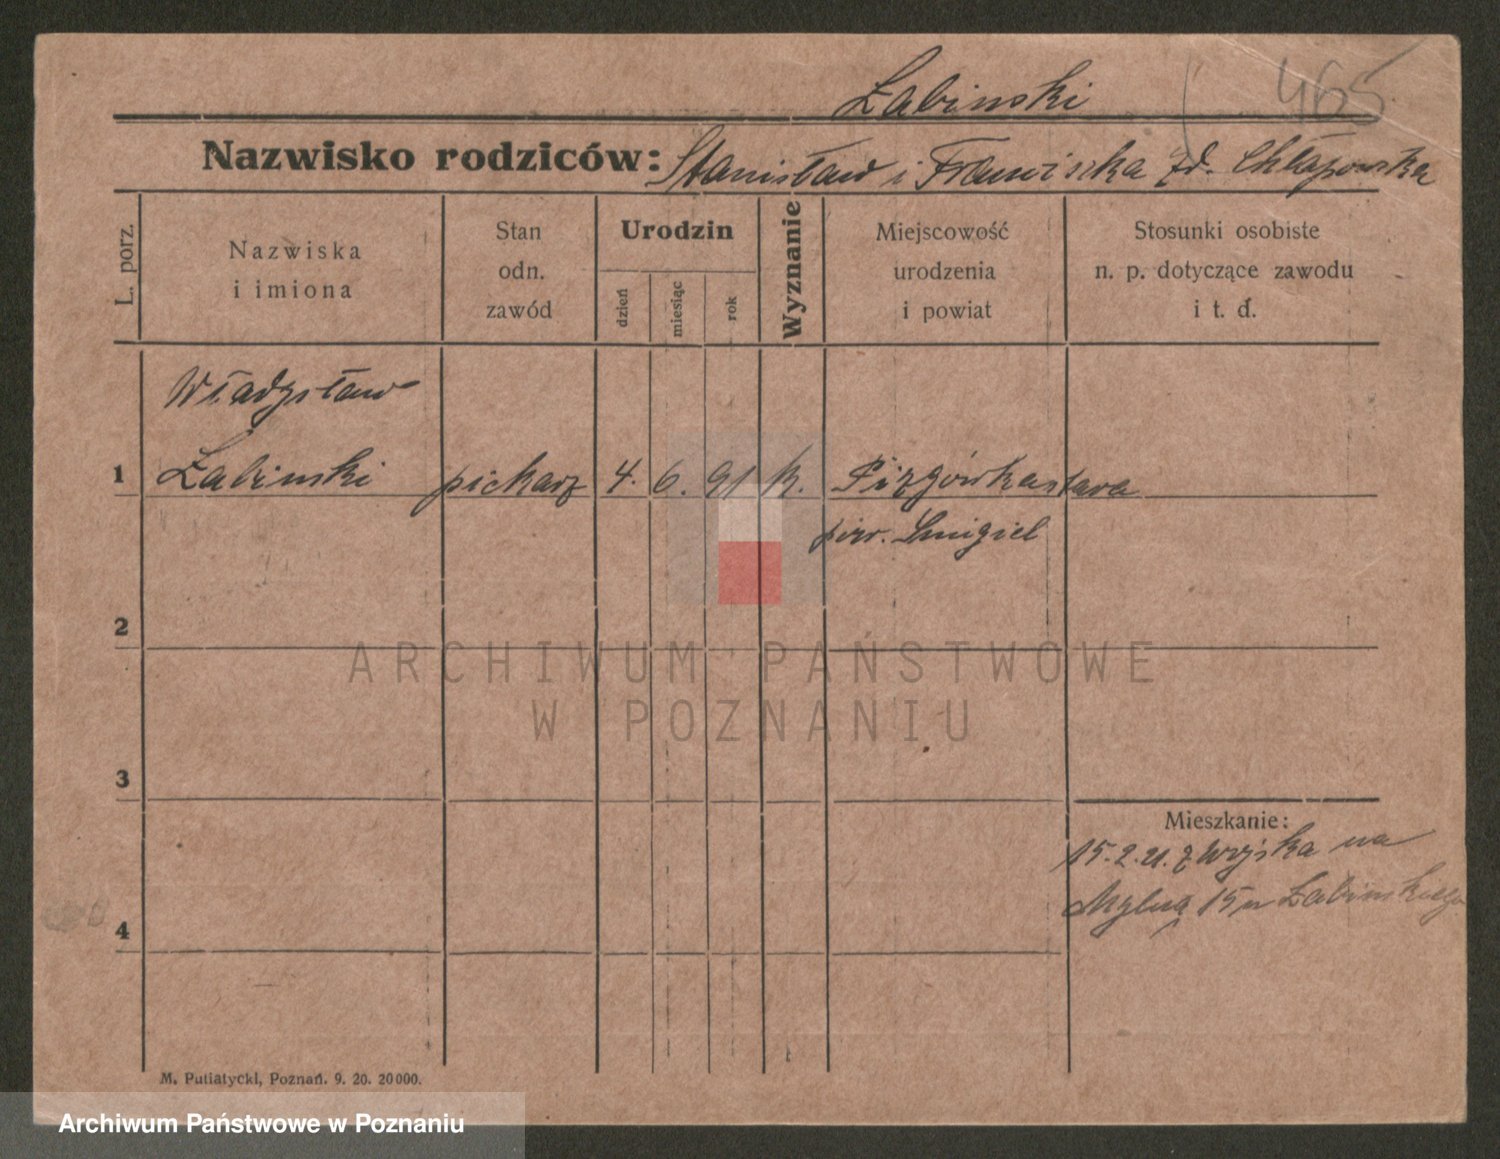 Żabinski 465
Nazwisko rodziców: Stanisław i Franciszka zd. Chłapowska
L. porz.
Nazwiska
i imiona
Stan
odn.
zawód
Urodzin
dzień
miesiąc
rok
Wyznanie
Miejscowość
urodzenia
i powiat
Stosunki osobiste
n. p. dotyczące zawodu
i t. d.
Władysław
1 Żabinski piekarz 4. 6. 91 k.
pow. Śmigiel
2
ARCHIWUM PAŃSTWOWE
W POZNANIU
3
Mieszkanie:
15.2.21. z wojska na
4 Mylną 15 Żabinskiego
M. Putiatycki, Poznań. 9. 20. 20000.
Archiwum Państwowe w Poznaniu